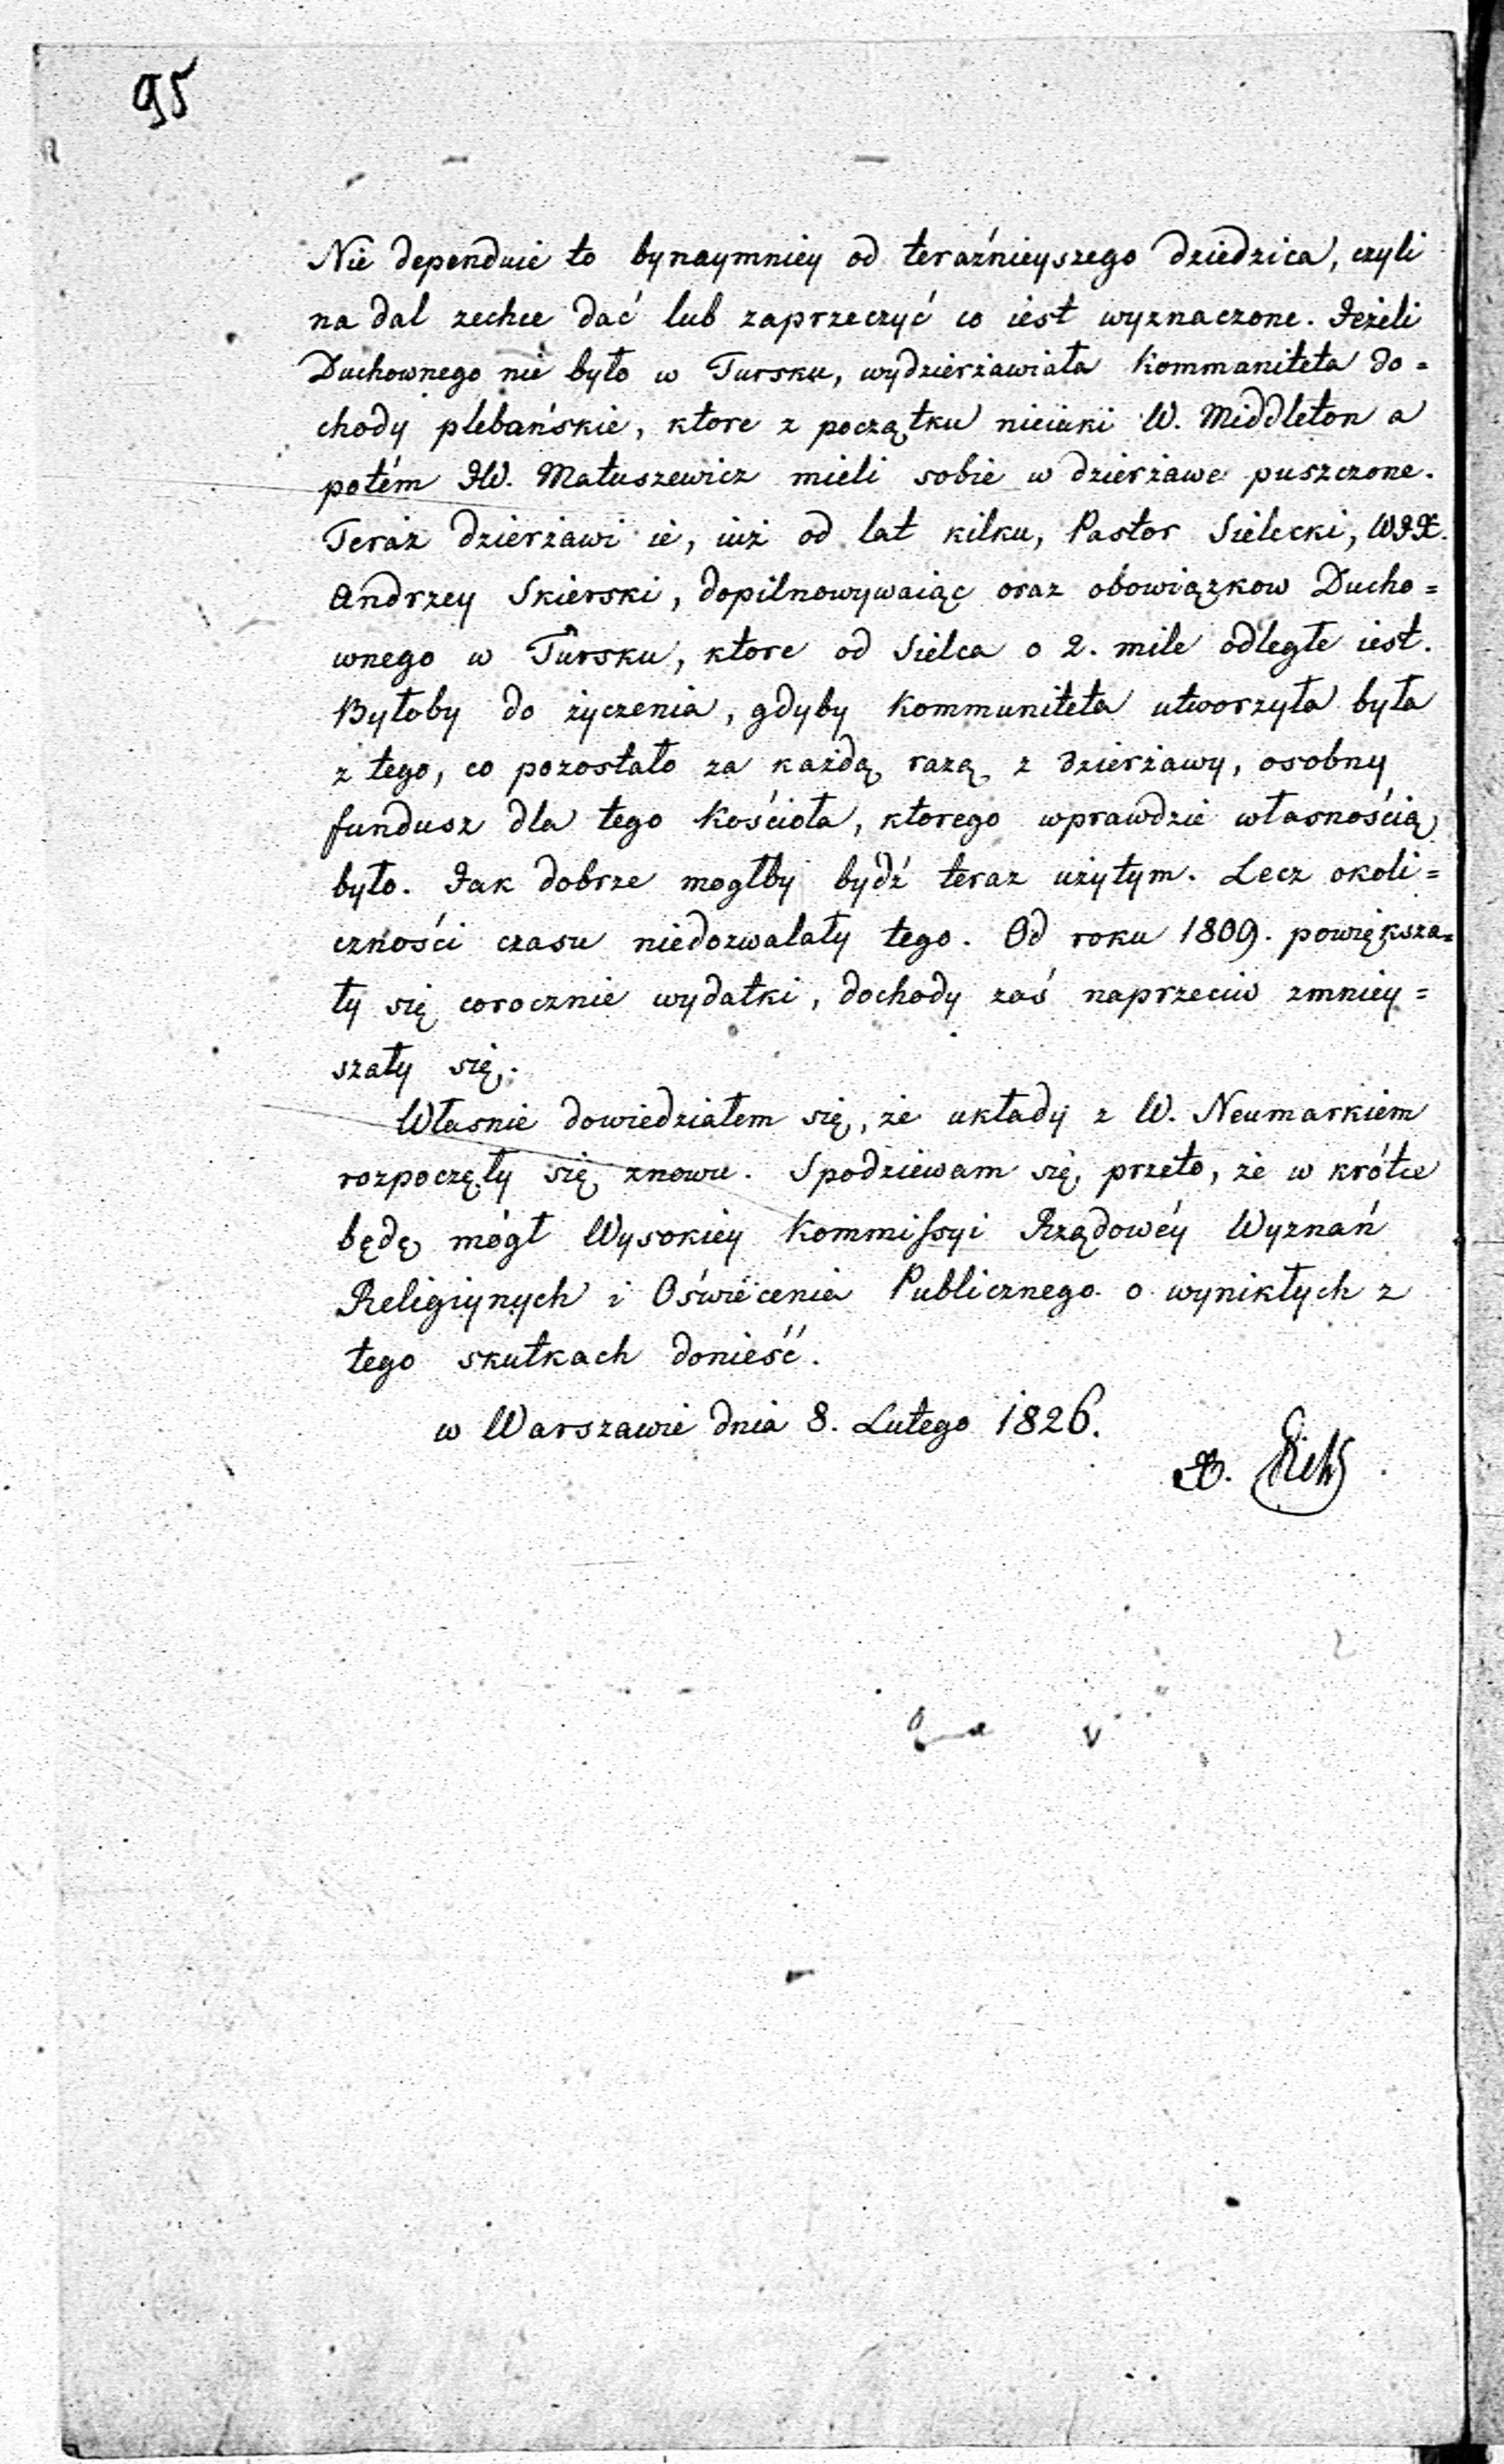 95
Nie dependuie to bynaymniey od teraźnieyszego dziedzica, czyli
na dal zechce dać lub zaprzeczyć co iest wyznaczone. Jeżeli
Duchownego nie było w Tursku, wydzierżawiała Kommuniteta do=
chody plebańskie, ktore z początku nieiaki W. Middleton a
potém JW. Matuszewicz mieli sobie w dzierżawe puszczone.
Teraz dzierżawi ie, iuż od lat kilku, Pastor Sielecki, WJX.
Andrzey Skierski, dopilnowywaiąc oraz obowiązkow Ducho=
wnego w Tursku, ktore od Sielca o 2. mile odległe iest.
Byłoby do życzenia, gdyby Kommuniteta utworzyła była
z tego, co pozostało za każdą razą z dzierżawy, osobny
fundusz dla tego Kościoła, ktorego wprawdzie własnością
było. Jak dobrze mogłby bydź teraz użytym. Lecz okoli=
czności czasu niedozwalały tego. Od roku 1809. powiększa=
ły się corocznie wydatki, dochody zaś naprzeciw zmniey=
szały się.
Własnie dowiedziałem się, że układy z W. Neumarkiem
rozpoczęły się znowu. Spodziewam się przeto, że w krótce
będę mógł Wysokiey Kommissyi Rządowéy Wyznań
Religiynych i Oświecenia Publicznego o wynikłych z
tego skutkach donieść.
w Warszawie dnia 8. Lutego 1826.